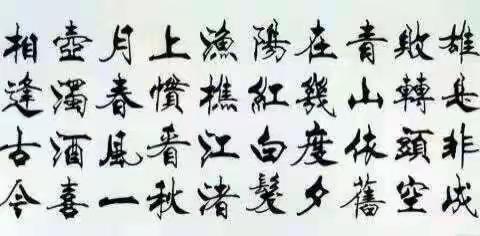 雄是非成
敗轉頭空
青山依舊
在幾度夕
陽紅白髮
漁樵江渚
上慣看秋
月春風一
壺濁酒喜
相逢古今